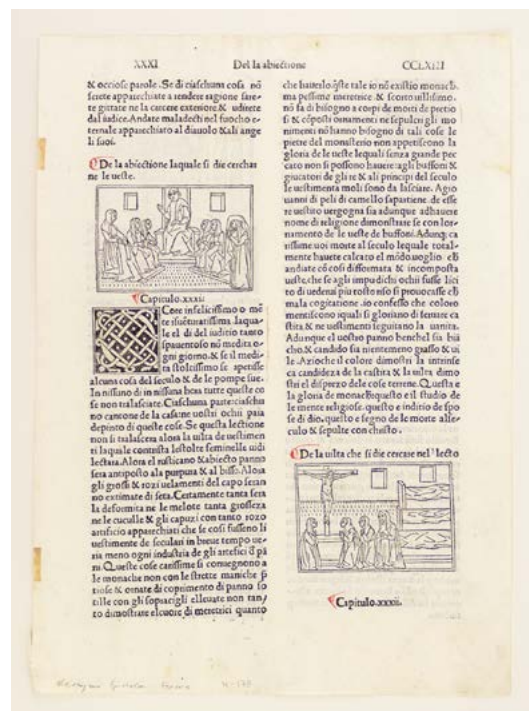 XXXI Del la abiectione CCLXIII
& occiose parole. Se di ciaschuna cosa nō
serete apparechiate a rendere ragione sare-
te gittate ne la carcere exteriore. & udirete
dal iudice. Andate maladecti nel fuocho e-
ternale apparechiato al diauolo & ali ange
li suoi.
De la abiectione laquale si die cerchar
ne le ueste.
Capitulo.xxxi.
infelicissimo o mē
te isuēturatissima. laqua-
le el di del iuditio tanto
spauentoso nō medita o
gni giorno. & se il medi
ta stoltissimo se apetisse
alcuna cosa del seculo & de le pompe sue.
In nissuno di in nissuna hora tutte queste co
se non tralasciate. Ciaschuna parte: ciaschu
no cantone de la casa: ne uostri ochii paia
depinto di queste cose. Se questa lectione
non si tralascera alora la uilta de uestimen
ti laquale contrista le stolte feminelle uidi
lectara. Alora el rusticano & abiecto panno
sera antiposto ala purpura & al bisso. Alora
gli grossi & rozi uelamenti del capo seran
no extimate di seta. Certamente tanta sera
la deformita ne le melote tanta grosseza
ne le cuculle & gli capuzi con tanto rozo
artificio apparechiati che se cosi fusseno li
uestimente de seculari in breue tempo ue-
ria meno ogni industria de gli artefici d pā
ni. Queste cose carissime si conuegnono a
le monache non con le strette maniche p
tiose & ornate di coprimento di panno so
tille con gli sopracigli elleuate non tan/
to dimostrare el cuore di meretrici quanto
che hauerlo. q̄ste tale io nō existio monach.
ma pessime meretrice & scorto uilissimo.
nō fa di bisogno a corpi de morti de pretio
si & cōposti ornamenti ne sepulcri gli mo
nimenti nō hanno bisogno di tali cose le
pietre del monasterio non appetiscono la
gloria de le ueste lequali senza grande pec
cato non si possono hauere: agli buffoni &
giucatori de gli re & ali principi del seculo
le uestimenta moli sono da lasciare. A gio
uanni di peli di camello sapartiene. de esse
re uestito uergogna sia adunque adhauere
nome di religione dimonstrare se con lor-
namento de le ueste de buffoni. Adunq; ca
rissime uoi morte al seculo lequale total-
mente hauete calcato el mōdo. uoglio ch
andiate cō cosi difformata & incomposta
ueste, che se agli impudichi ochii fusse lici
to di uederui piu tosto riso si prouocasse ch
mala cogitatione. io confesso che coloro
mentiscono iquali si gloriano di seruare ca
stita & ne uestimenti seguitano la uanita.
Adunque el uostro panno benchel sia biā
cho. & candido sia nientemeno grasso & ui
le. Azioche il colore dimostri la intrinse
ca candideza de la castita & la uilta dimo
stri el disprezo dele cose terrene. Questa e
la gloria de monach questo e il studio de
le mente religiose. questo e inditio de spo
se di dio. questo e segno de le morte al se-
culo & sepulte con christo.
De la uilta che si die cercare nel lecto
Capitulo.xxxii.